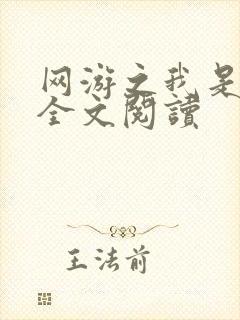 网游之我是
全文閱讀
王法前